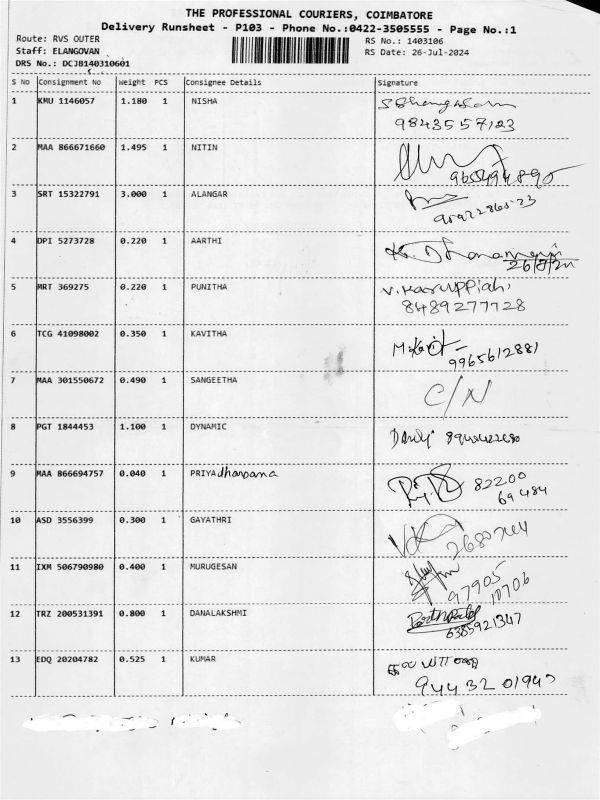 THE PROFESSIONAL COURIERS, COIMBATORE
Delivery Runsheet - P103 - Phone No.:0422-3505555 - Page No.:1
Route: RVS OUTER
RS No.: 1403106
Staff: ELANGOVAN
RS Date: 26-Jul-2024
DRS No.: DCJB140310601
S No Consignment No Weight PCS Consignee Details Signature
1 KMU 1146057 1.180 1 NISHA
9843557123
2 MAA 866671660 1.495 1 NITIN
3 SRT 15322791 3.000 1 ALANGAR
4 DPI 5273728 0.220 1 AARTHI
5 MRT 369275 0.220 1 PUNITHA V. Karuppiah
8489277728
6 TCG 41098002 0.350 1 KAVITHA
9965612881
7 MAA 301550672 0.490 1 SANGEETHA C/N
8 PGT 1844453 1.100 1 DYNAMIC
9 MAA 866694757 0.040 1 PRIYA 82200
69484
10 ASD 3556399 0.300 1 GAYATHRI
11 IXM 506790980 0.400 1 MURUGESAN 97905
12 TRZ 200531391 0.800 1 DANALAKSHMI
6385921347
13 EDQ 20204782 0.525 1 KUMAR